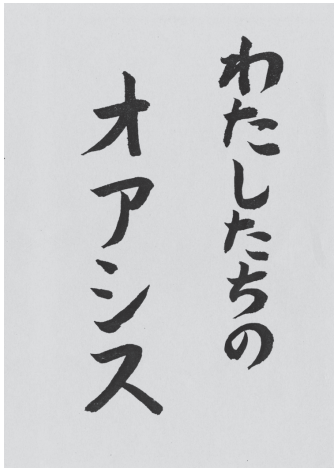 わたしたちの
オアシス